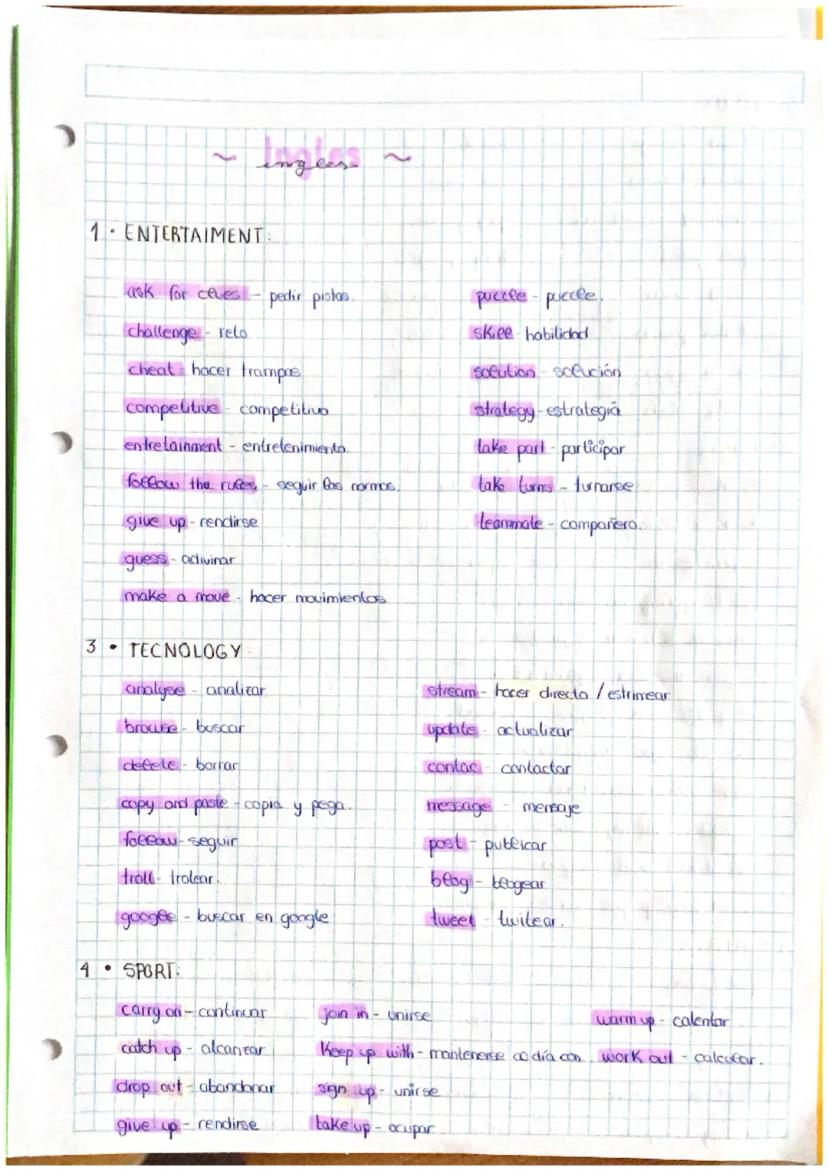 ~ Ingles ~
ingles
1 • ENTERTAIMENT:
ask for clues - pedir pistas.
challenge - reto
cheat hacer trampas
competitive - competitivo
entretainment - entretenimiento.
follow the rules - seguir las normas.
give up - rendirse
guess - adivinar
make a move - hacer movimientos
puzzle - puzzle.
skill habilidad
solution - solución
strategy - estrategia
take part - participar
take turns - turnarse
teammate - compañero.
3 • TECNOLOGY:
analyse - analizar
browse - buscar
delete - borrar
copy and paste - copia y pega.
follow - seguir
troll - trolear.
google - buscar en google
stream - hacer directo / estrimear
update - actualizar
contac - contactar
message - mensaje
post - publicar
blog - blogear
tweet - twitear.
4 • SPORT:
carry on - continuar
catch up - alcanzar
drop out - abandonar
give up - rendirse
join in - unirse
keep up with - mantenerse al día con.
sign up - unirse
take up - ocupar
warm up - calentar
work out - calcular.